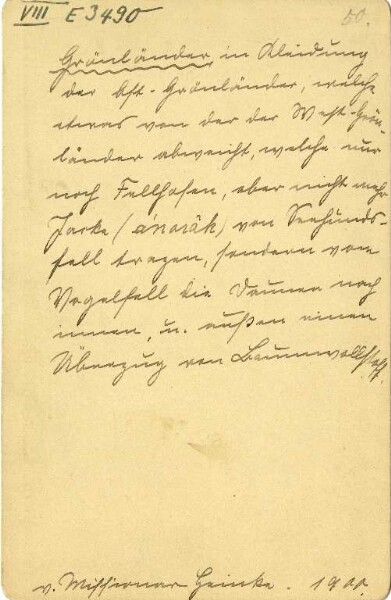 VIII E 3490
50.
Grönländer in Kleidung
der Ost-Grönländer, welche
etwas von der der West-Grön
länder abweicht, welche nur
noch Fellhosen, aber nicht mehr
Jacke (ánorâk) von Seehunds-
fell tragen, sondern vom
Vogelfell die Daunen nach
innen, u. außen einen
Überzug von Baumwollstoff.
v. Missionar Heincke. 1900.